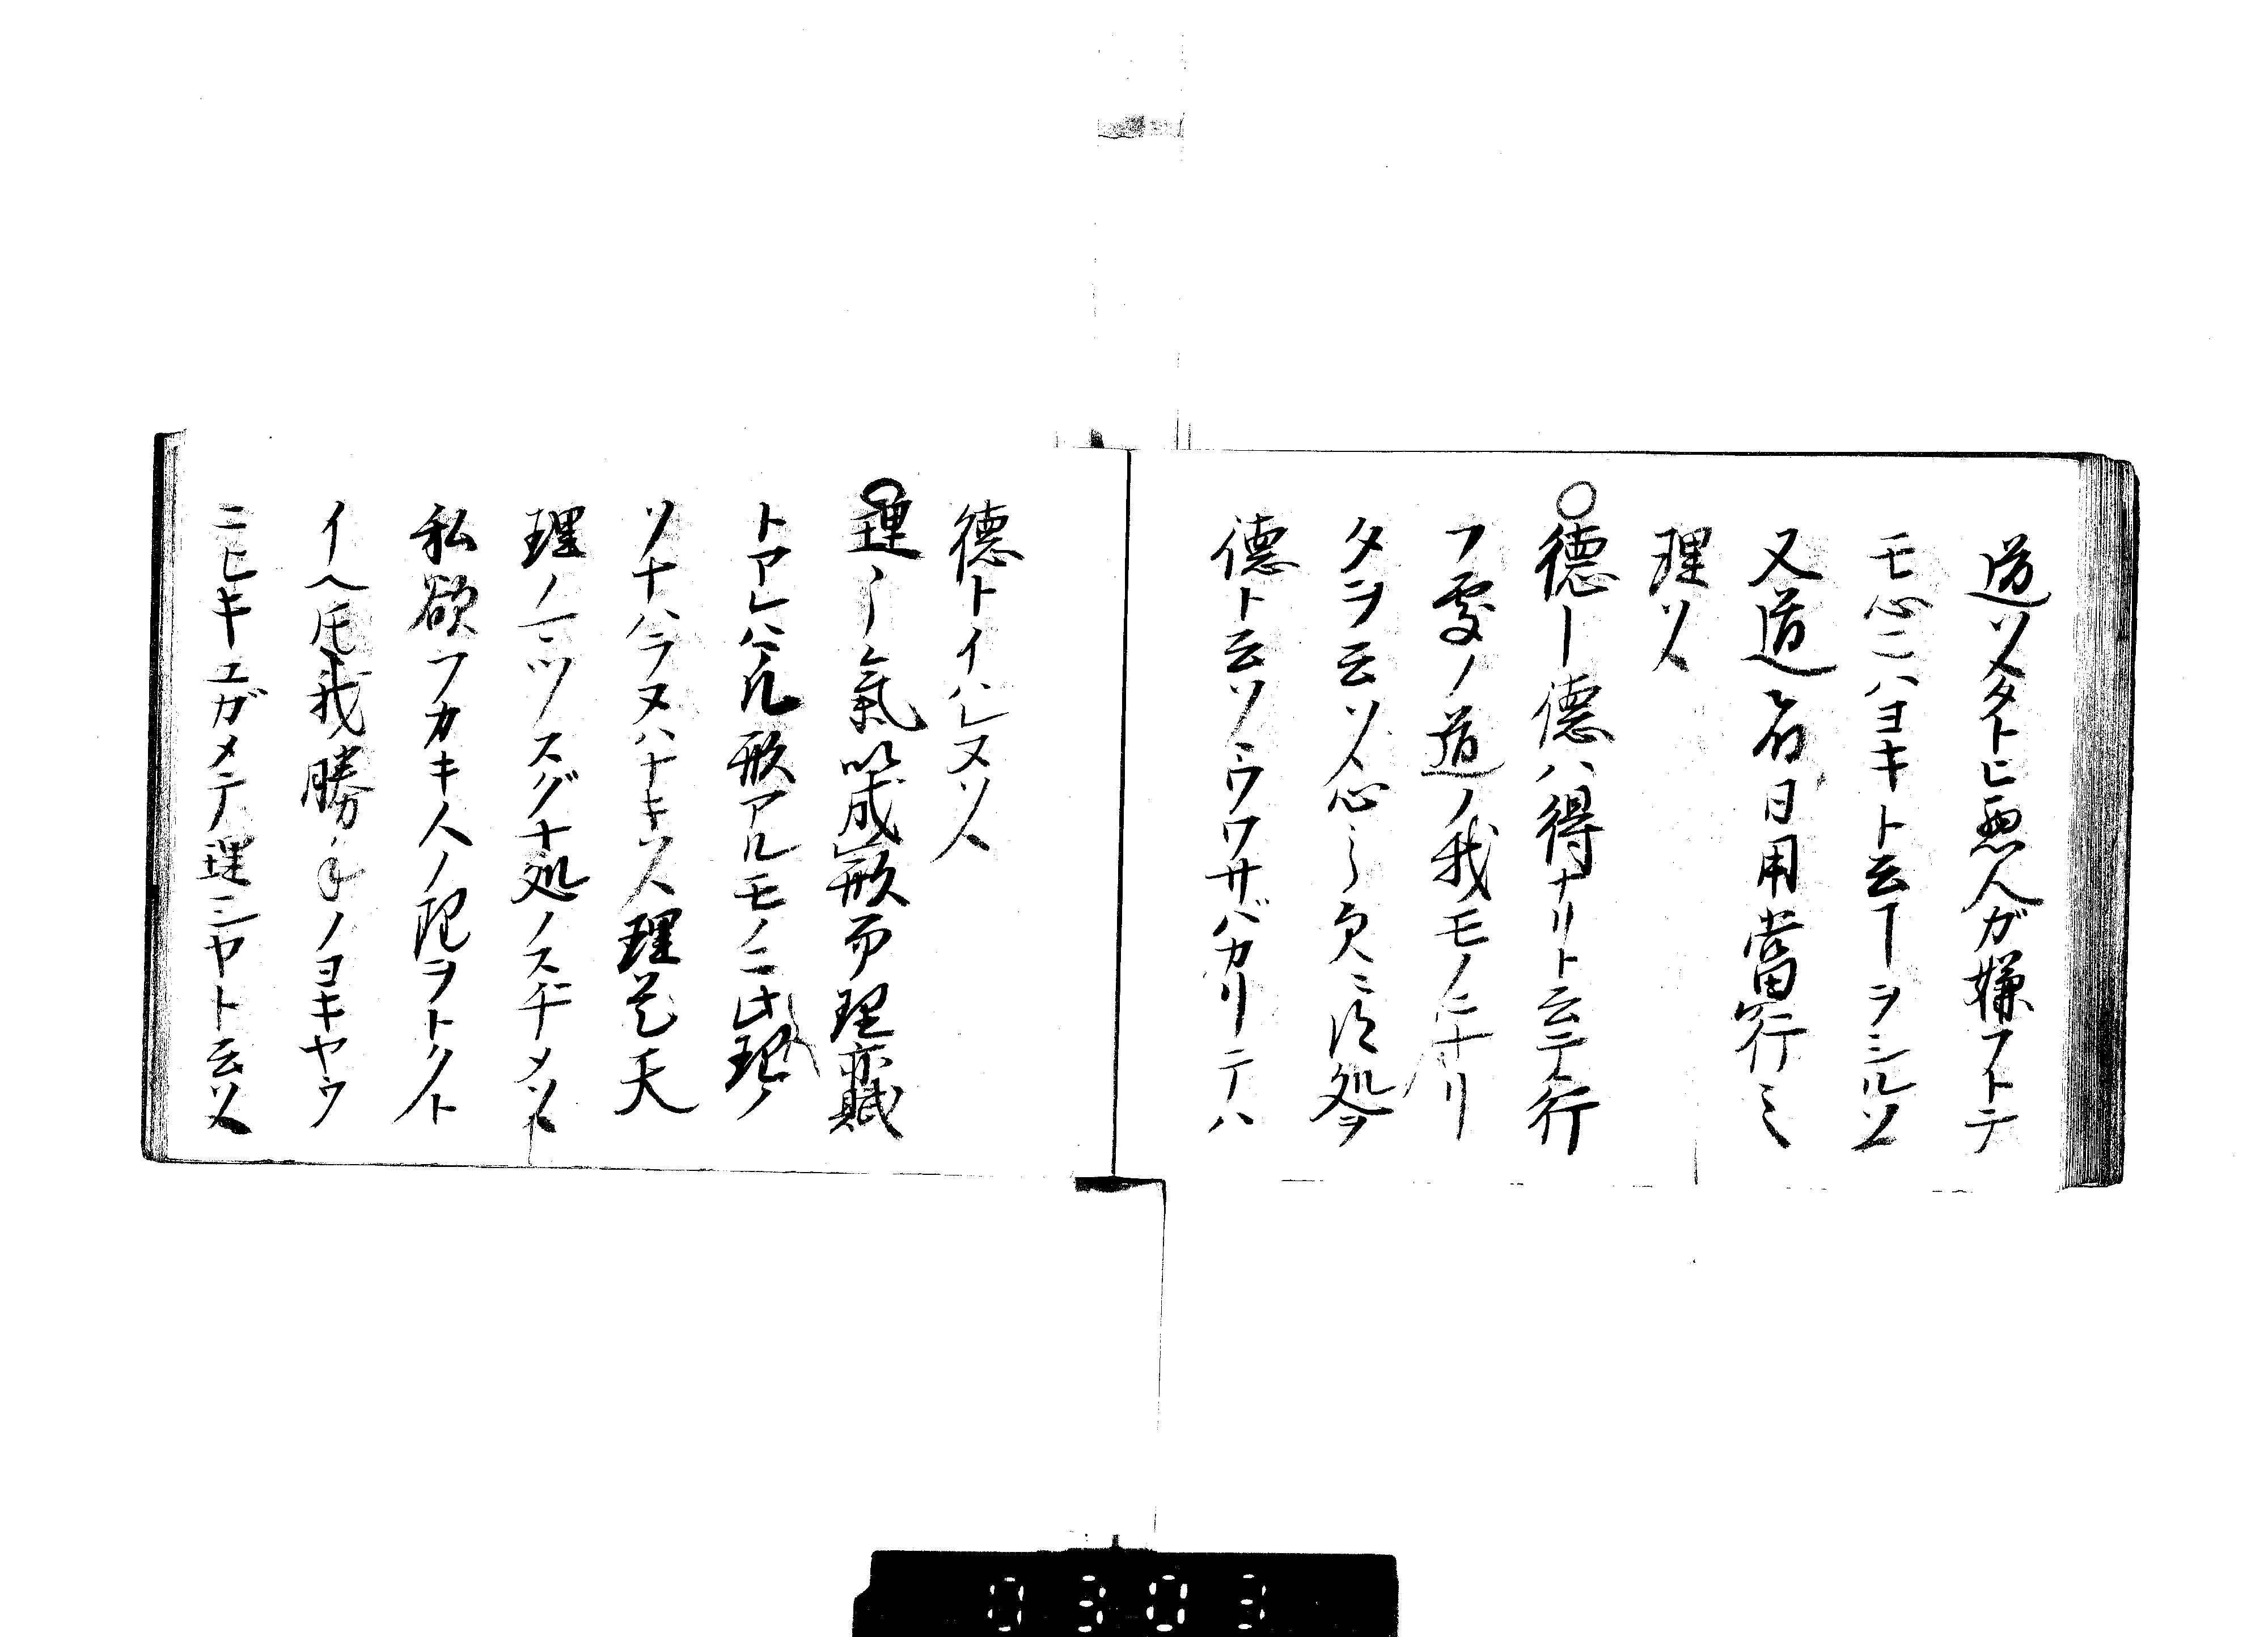 道ソタトヒ悪人ガ嫌フトテ
モ心ニハヨキト云ヿヲシルソ
又道者日用當行之
理ソ
○德ー德ハ得ナリト云テ行
フ處ノ道ノ我モノニナリ
タヲ云ソ心之身ニ得処ヲ
德ト云ソウワサバカリニテハ
德トイハレヌソ
○理ー氣以成形而理亦賦
トアレハ凡形アルモノニ此理ノ
ソナハラヌハナキソ理是天
理ノ一ツスグナ処ノスヂメソ
私欲フカキ人ノ理ヲトクト
イヘ𪜈我勝手ノヨキヤウ
ニヒキユガメテ理シヤト云ソ
0303